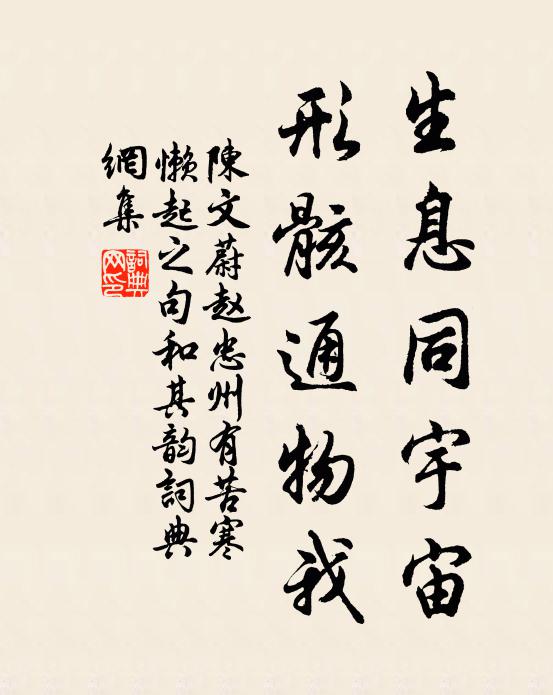 生息同宇宙
形骸通物我
陳文蔚赵忠州有苦寒
懒起之句和其韵詞典
網集
詞典网印